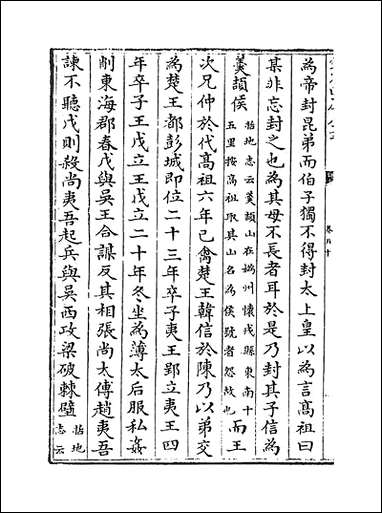 為帝封昆弟而伯子獨不得封太上皇以為言髙祖曰
某非忘封之也為其母不長者耳於是乃封其子信為
羮頡侯括地志云羮頡山在媯州懷戎縣東南十五里按髙祖取其山名為侯號者怨故也而王
次兄仲於代髙祖六年已禽楚王韓信於陳乃以弟交
為楚王都彭城即位二十三年卒子夷王郢立夷王四
年卒子王戊立王戊立二十年冬坐為薄太后服私姦
削東海郡春戊與吳王合謀反其相張尚太傅趙夷吾
諫不聽戊則殺尚夷吾起兵與吳西攻梁破棘壁括地志云
卷五十